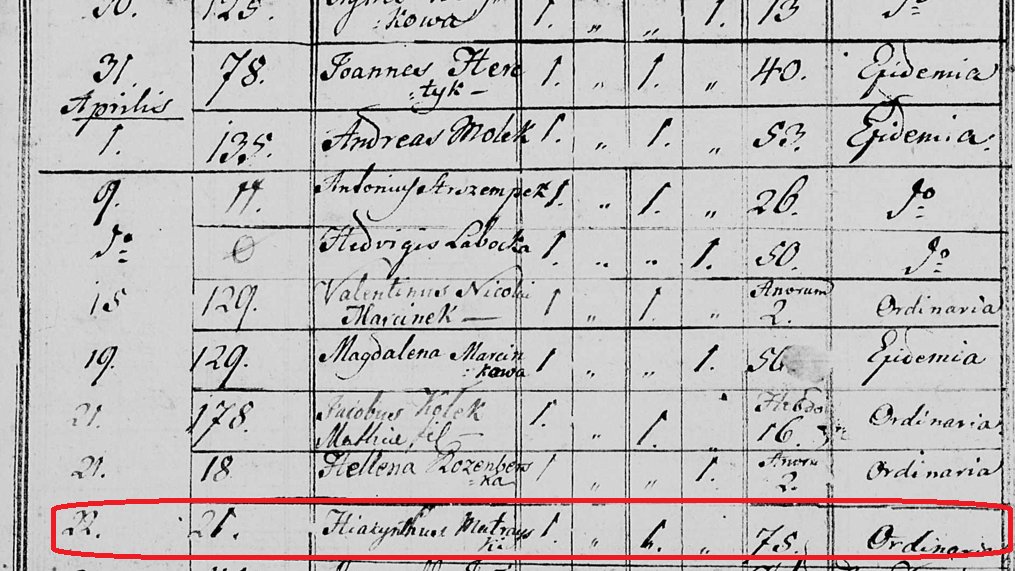 30. 125. kowa 1. „ „ 1. 13 do
31 78. Joannes Here 1. „ 1. „ 40. Epidemia
Aprilis :tyk —
1. 135. Andreas Molek 1. „ 1. „ 53. Epidemia.
9. 77. Antonius Strzempek 1. „ 1. „ 26. do
do 0 Hedvigis Labocka 1. „ „ 1. 50. do
15 129. Valentinus Nicolai 1 „ 1. „ Anorum Ordinaria
Marcinek — 2.
19. 129. Magdalena Marcin 1. „ „ 1. 56 Epidemia
:kowa
21. 178. Jacobus Kolek 1. „ 1. „ Hebdo Ordinaria
Mathiae fil — 16.
21. 18 Hellena Rozenbers 1 „ „ 1. Anoru Ordinaria
:ka 2.
22. 21. Hiacynthus Matrays 1. „ 1. „ 75. Ordinaria
:ki